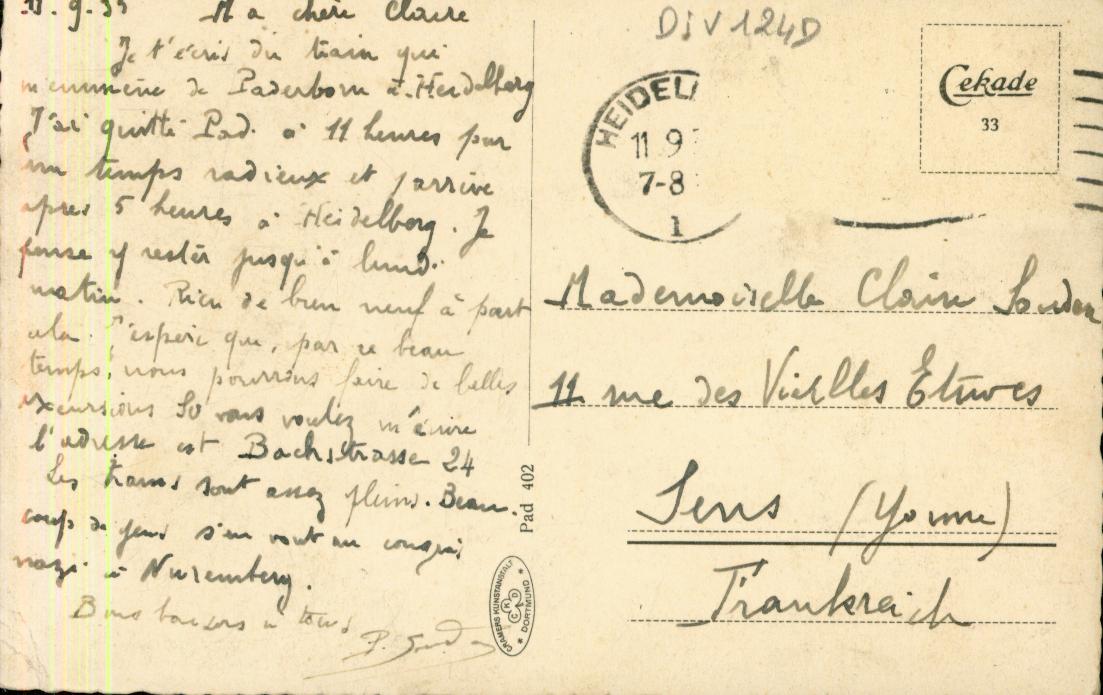 11.9.35 Ma chère Claire
Je t'écris du train qui
m'emmène de Paderborn à Heidelberg
J'ai quitté Pad. à 11 heures par
un temps radieux et j'arrive
après 5 heures à Heidelberg. Je
pense y rester jusqu'à lundi
matin. Rien de bien neuf à part
cela. J'espère que, par ce beau
temps, nous pourrons faire de belles
excursions. Si vous voulez m'écrire
l'adresse est Bachstrasse 24
Les trains sont assez pleins. Beau-
coup de gens s'en vont au congrès
nazi à Nuremberg.
Bons baisers à tous
P.
DJV124D
HEIDEL
11 9
7-8
1
Cekade
33
Mademoiselle Claire
11 rue des Vieilles Etuves
Sens (Yonne)
Frankreich
Pad 402
CRAMERS KUNSTANSTALT
CKD
* DORTMUND *